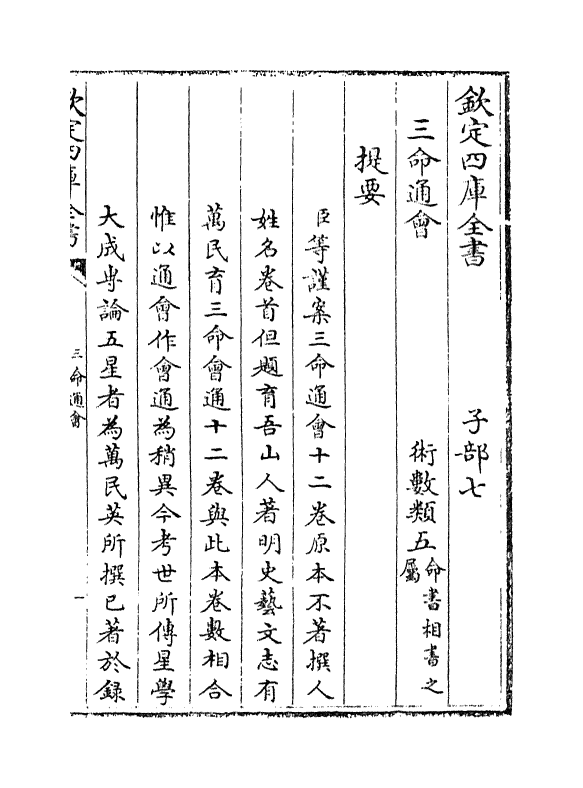 欽定四庫全書　子部七
三命通會　術數類五命書相書之屬
提要
臣等謹案三命通會十二卷原本不著撰人
姓名卷首但題育吾山人著明史藝文志有
萬民育三命會通十二卷與此本卷數相合
惟以通會作會通為稍異今考世所傳星學
大成専論五星者為萬民英所撰已著於録
欽定四庫全書
三命通會
一